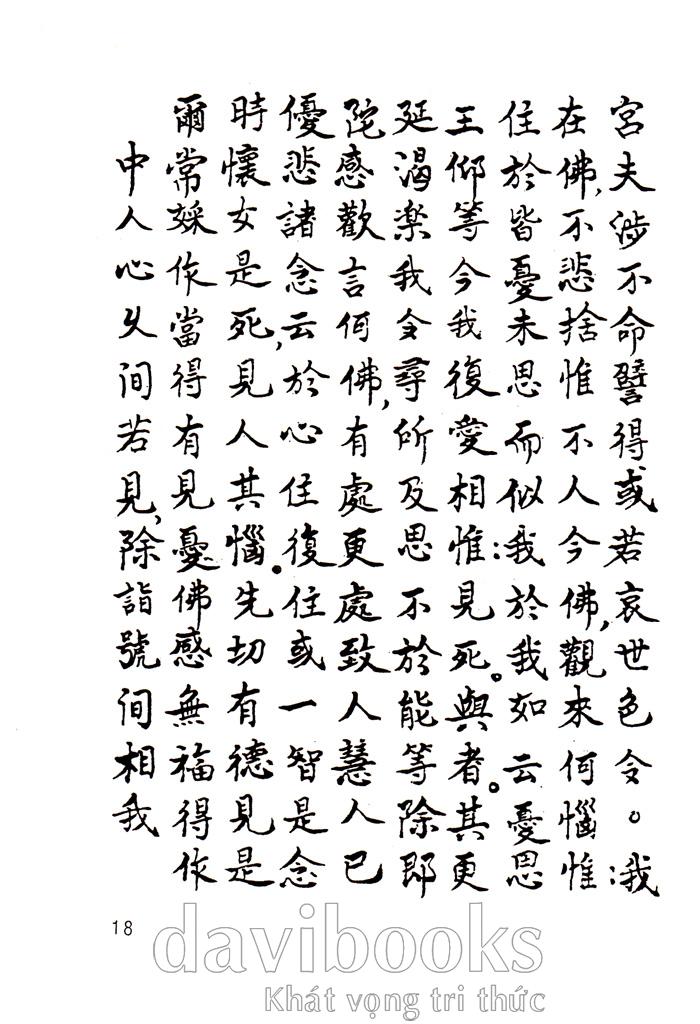 宮夫涉不命譬得或若哀世色令。我
在佛,不悲捨惟不人今佛,觀來何惱惟
住於皆憂未思而似:我於我如云憂思
王仰等今我復愛相惟:見死。與者。其更
延渴樂我令尋所及思不於能等除即
陀感歡言何佛,有處更處致人慧人已
優悲諸念云於心住復住或一智是念
時懷女是死,見人其惱。先切有德見是
爾常婇作當得有見憂佛感無福得作
中人心又间若見,除詣號间相我
18
davibooks
Khát vọng tri thức